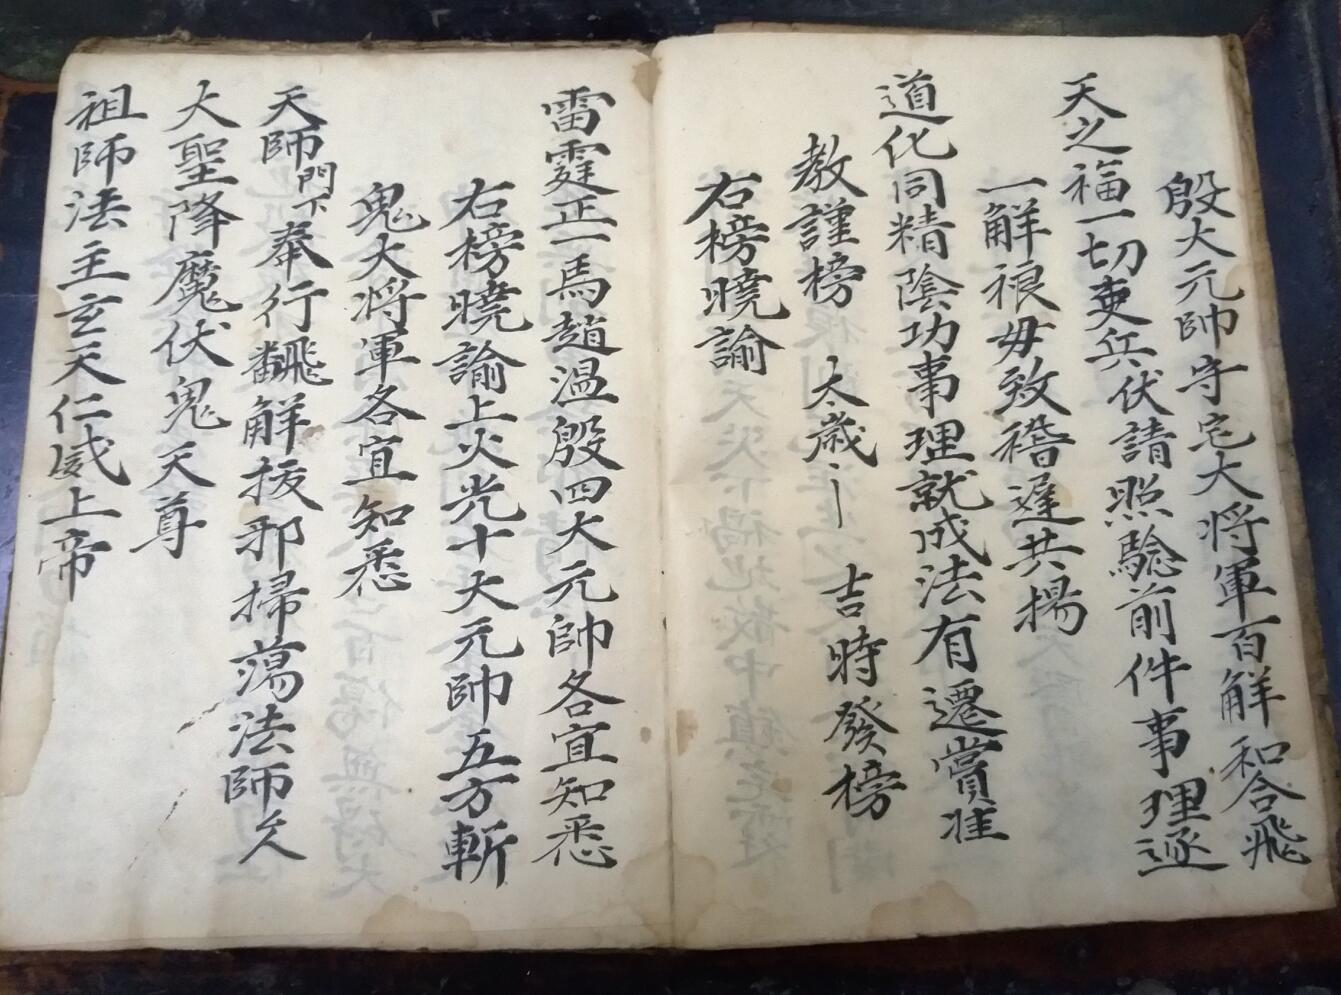 殷大元帥守宅大将軍百解和合飛
天之福一切吏兵伏請照驗前件事理逐
一解禳毋致稽遲共揚
道化同精陰功事理就成法有遷賞准
教謹榜　太歲　吉時發榜
右榜曉諭
雷霆正一馬趙温殷四大元帥各宜知悉
右榜曉諭上火光十大元帥五方斬
鬼大将軍各宜知悉
天師門下奉行飜解拔邪掃蕩法師厶
大聖降魔伏鬼天尊
祖師法主玄天仁威上帝